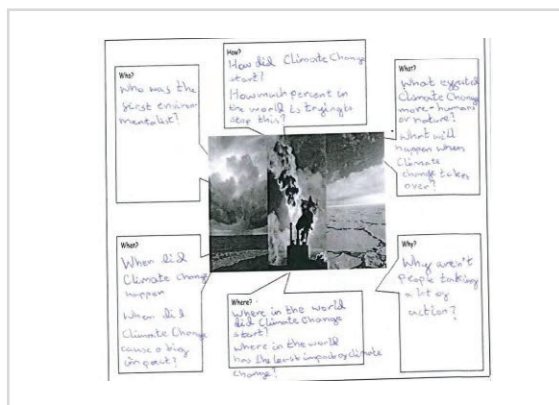 Who?
Who was the
first environ
mentalist?
How?
How did Climate Change
start?
How much percent in
the world is trying to
stop this?
What?
What effected
Climate Change
more humans
or nature?
What will
happen when
Climate
change takes
over?
When?
When did
Climate change
happen
When did
Climate Change
cause a big
impact?
Where?
Where in the world
did Climate Change
start?
Where in the world
has the least impact by climate
change?
Why?
Why aren't
people taking
a lot of
action?